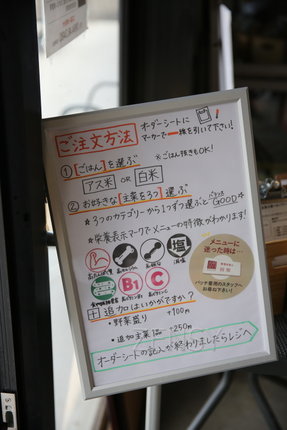 ご注文方法
オーダーシートに
マーカーで一線を引いて下さい!
① 「ごはん」を選ぶ
※ごはん抜きもOK!
アス米 OR 白米
② お好きな「主菜を3つ」選ぶ
★3つのカテゴリーから1つずつ選ぶとGOOD★
★栄養表示マークでメニューの特徴がわかります!
塩
B1
C
メニューに
迷った時は…
バッチ着用のスタッフへ
お尋ね下さい!
＋追加はいかがですか?
・野菜盛り +100m
・追加主菜1品 +250m
オーダーシートの記入が終わりましたらレジへ